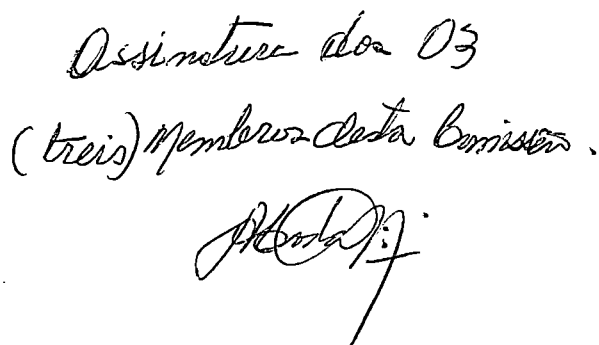 Assinatura dos 03
(treis) Membros desta Comissão.